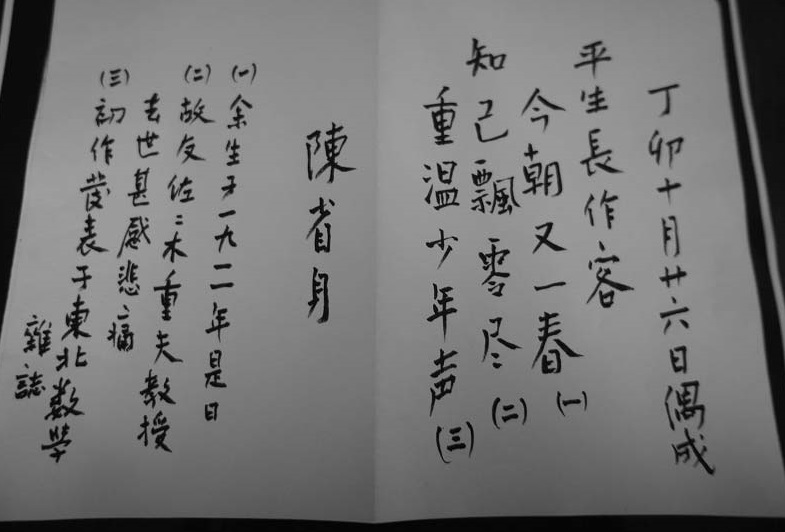 丁卯十月廿六日偶成
平生長作客
今朝又一春（一）
知己飄零尽（二）
重温少年声（三）
陳省身
（一）余生于一九一二年是日
（二）故友佐々木重夫教授
去世甚感悲痛
（三）初作發表于東北数学
雜誌